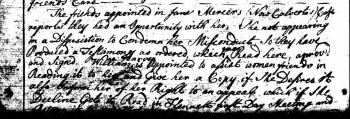 friends Care
The friends appointed in Jane Mercers (Now Calverts) Case
report they had an Opportunity with her, She not appearing
in a Disposition to Condemn her Misconduct So they have
Produced a Testimony as ordered which was read here, aprov'd
and Signed. William Harvey is appointed to assist women friends in
Reading it to her and Give her a Copy if She Desires it
also Inform her of her Right to an appeal, which if She
Decline Get it Read in Kennett first Day Meeting and